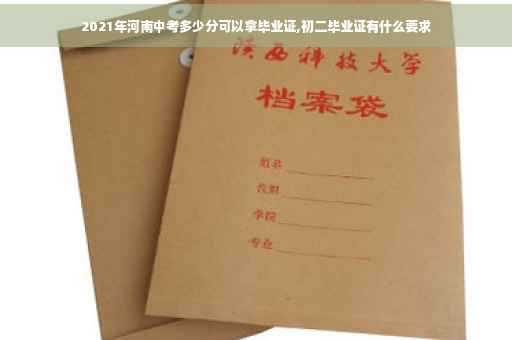 2021年河南中考多少分可以拿毕业证,初二毕业证有什么要求
陕西科技大学
档案袋
姓名
学院
专业